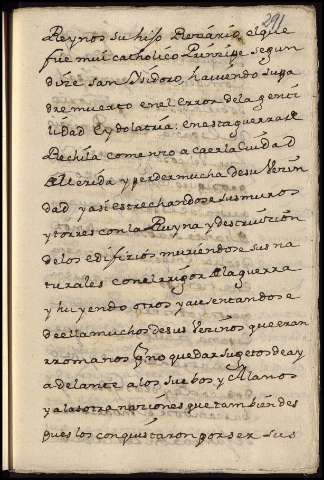 291
Reynos su hijo Recciario el que
fue mui catholico Prinzipe segun
dize san Ysidoro, haviendo su pa
dre muerto en el error de la genti
lidad e ydolatria: en esta guerra de
Rechila comenzo a caer la ciudad
de Merida y perder mucha de su Vecin
dad y asi estrechandose sus muros
y torres con la Ruyna y destruicion
de los edificios muriendose sus na
turales con el rigor de la guerra
y huyendo otros y ausentandose
de ella muchos de sus vecinos que eran
rromanos qe no quedar sugetos de ay
adelante a los Suebos y Alanos
y a las otra naziones que tambien des
pues los conquistaron por ser sus